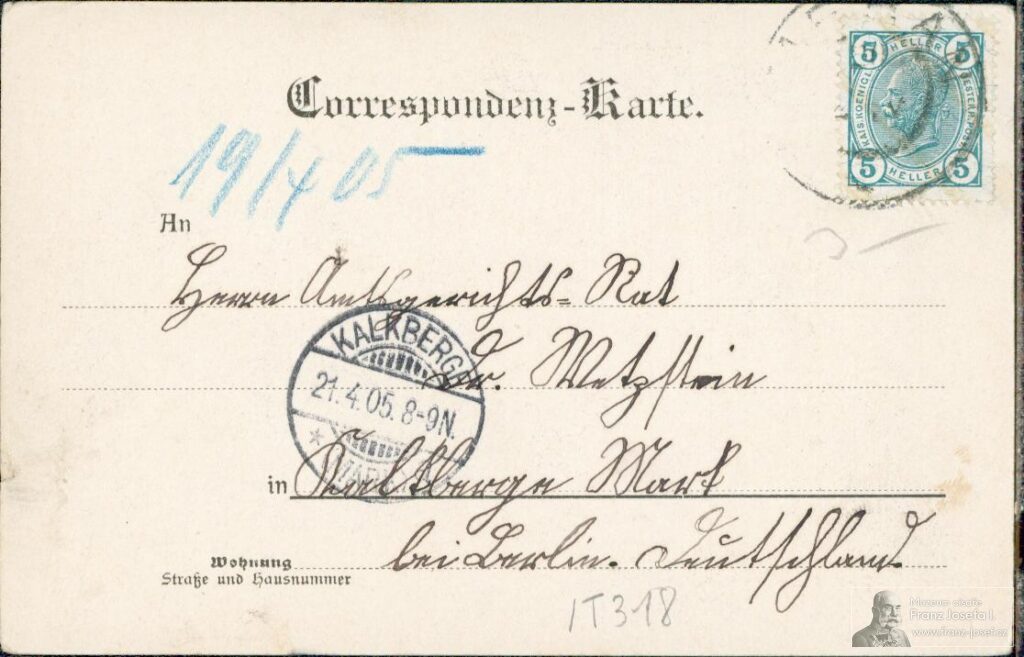 Correspondenz-Karte.
5 HELLER 5
KAIS. KOENIGL.
OESTERR. POST
5 HELLER 5
19/4 05
An
Herrn Amtsgerichts-Rat
Dr. Wetzstein
KALKBERGE
21.4.05. 8-9N.
*
in Kalkberge Mark
bei Berlin. Deutschland.
Wohnung
Straße und Hausnummer
IT318
Muzeum císaře
Franz Josefa I.
www.franz-josef.cz